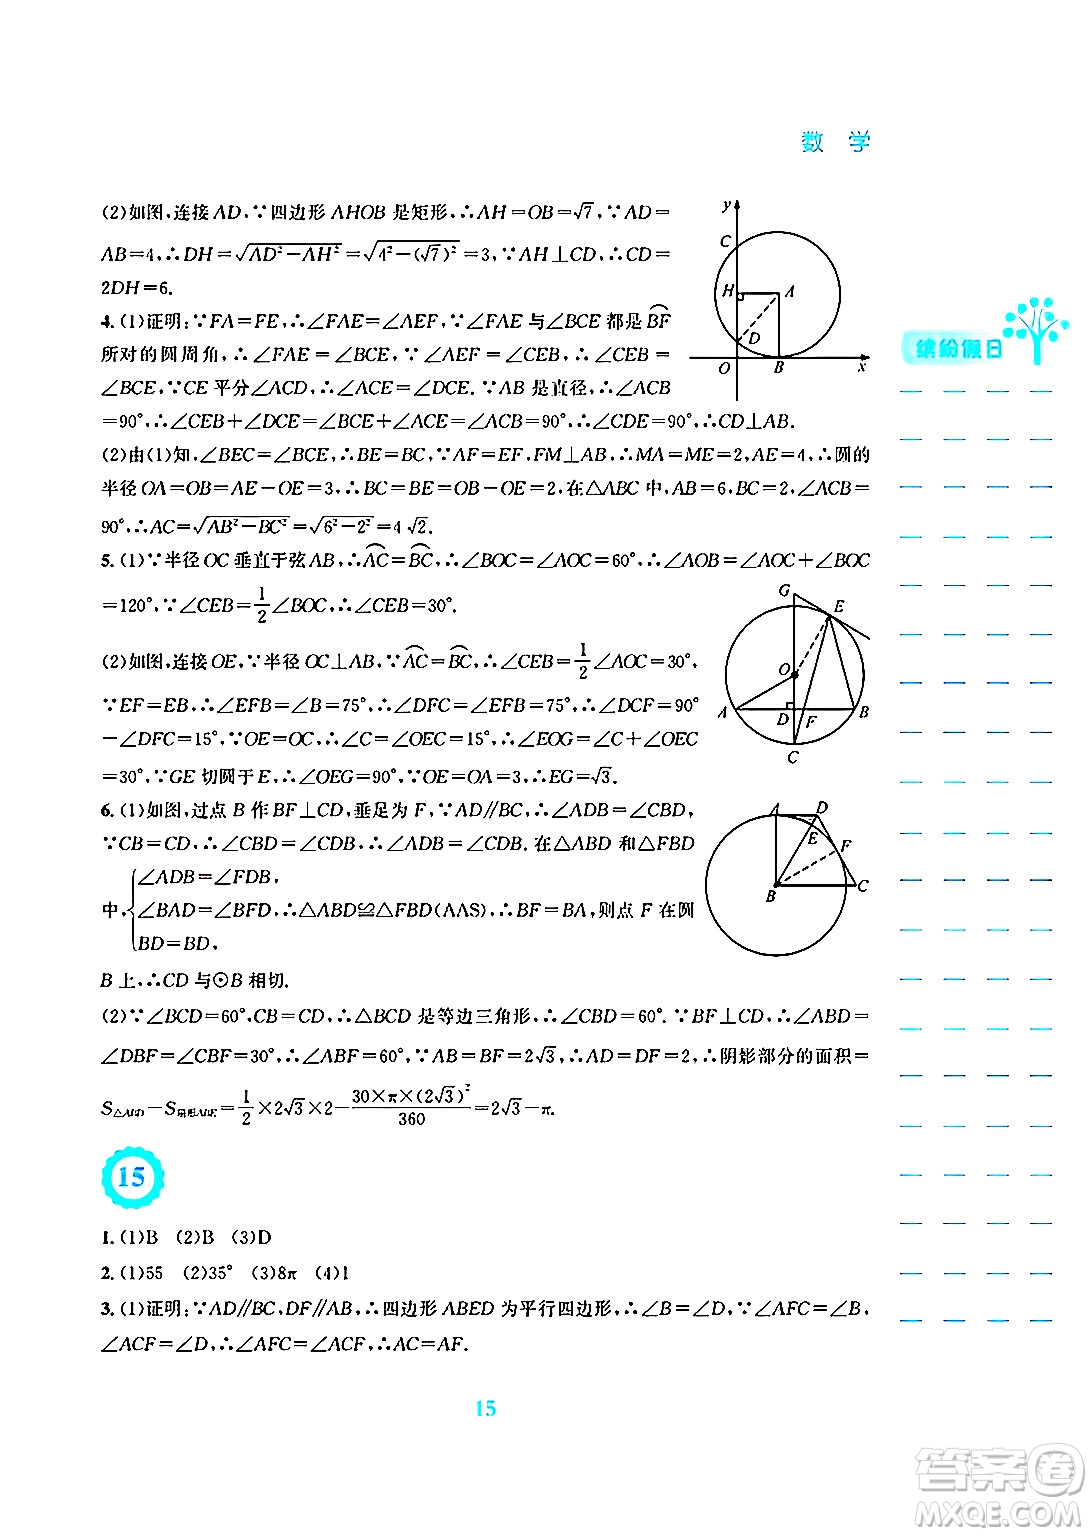 数 学
(2)如图,连接AD,∵四边形AHOB是矩形,∴AH=OB=√7,∵AD=
AB=4,∴DH=√(AD²-AH²)=√(4²-(√7)²)=3,∵AH⊥CD,∴CD=
2DH=6.
4.(1)证明:∵FA=FE,∴∠FAE=∠AEF,∵∠FAE与∠BCE都是B͡F
所对的圆周角,∴∠FAE=∠BCE,∵∠AEF=∠CEB,∴∠CEB=
∠BCE,∵CE平分∠ACD,∴∠ACE=∠DCE.∵AB是直径,∴∠ACB
=90°,∴∠CEB+∠DCE=∠BCE+∠ACE=∠ACB=90°,∴∠CDE=90°,∴CD⊥AB.
(2)由(1)知,∠BEC=∠BCE,∴BE=BC,∵AF=EF,FM⊥AB,∴MA=ME=2,AE=4,∴圆的
半径OA=OB=AE-OE=3,∴BC=BE=OB-OE=2,在△ABC中,AB=6,BC=2,∠ACB=
90°,∴AC=√(AB²-BC²)=√(6²-2²)=4√2.
5.(1)∵半径OC垂直于弦AB,∴A͡C=B͡C,∴∠BOC=∠AOC=60°,∴∠AOB=∠AOC+∠BOC
=120°,∵∠CEB=1/2∠BOC,∴∠CEB=30°.
(2)如图,连接OE,∵半径OC⊥AB,∵A͡C=B͡C,∴∠CEB=1/2∠AOC=30°,
∵EF=EB,∴∠EFB=∠B=75°,∴∠DFC=∠EFB=75°,∠DCF=90°
-∠DFC=15°,∵OE=OC,∴∠C=∠OEC=15°,∴∠EOG=∠C+∠OEC
=30°,∵GE切圆于E,∴∠OEG=90°,∵OE=OA=3,∴EG=√3.
6.(1)如图,过点B作BF⊥CD,垂足为F,∵AD∥BC,∴∠ADB=∠CBD,
∵CB=CD,∴∠CBD=∠CDB,∴∠ADB=∠CDB.在△ABD和△FBD
中,{∠ADB=∠FDB,
∠BAD=∠BFD,∴△ABD≌△FBD(AAS),∴BF=BA,则点F在圆
BD=BD,
B上,∴CD与⊙B相切.
(2)∵∠BCD=60°,CB=CD,∴△BCD是等边三角形,∴∠CBD=60°.∵BF⊥CD,∴∠ABD=
∠DBF=∠CBF=30°,∴∠ABF=60°.∵AB=BF=2√3,∴AD=DF=2,∴阴影部分的面积=
S△ABD-S扇形ABE=1/2×2√3×2-30×π×(2√3)²/360=2√3-π.
15
1.(1)B (2)B (3)D
2.(1)55 (2)35° (3)8π (4)1
3.(1)证明:∵AD∥BC,DF∥AB,∴四边形ABED为平行四边形,∴∠B=∠D,∵∠AFC=∠B,
∠ACF=∠D,∴∠AFC=∠ACF,∴AC=AF.
15
y
C
H
A
D
O
B
x
G
E
O
A
D
F
B
C
A
D
E
F
B
C
缤纷假日
答案卷
MXQE.COM